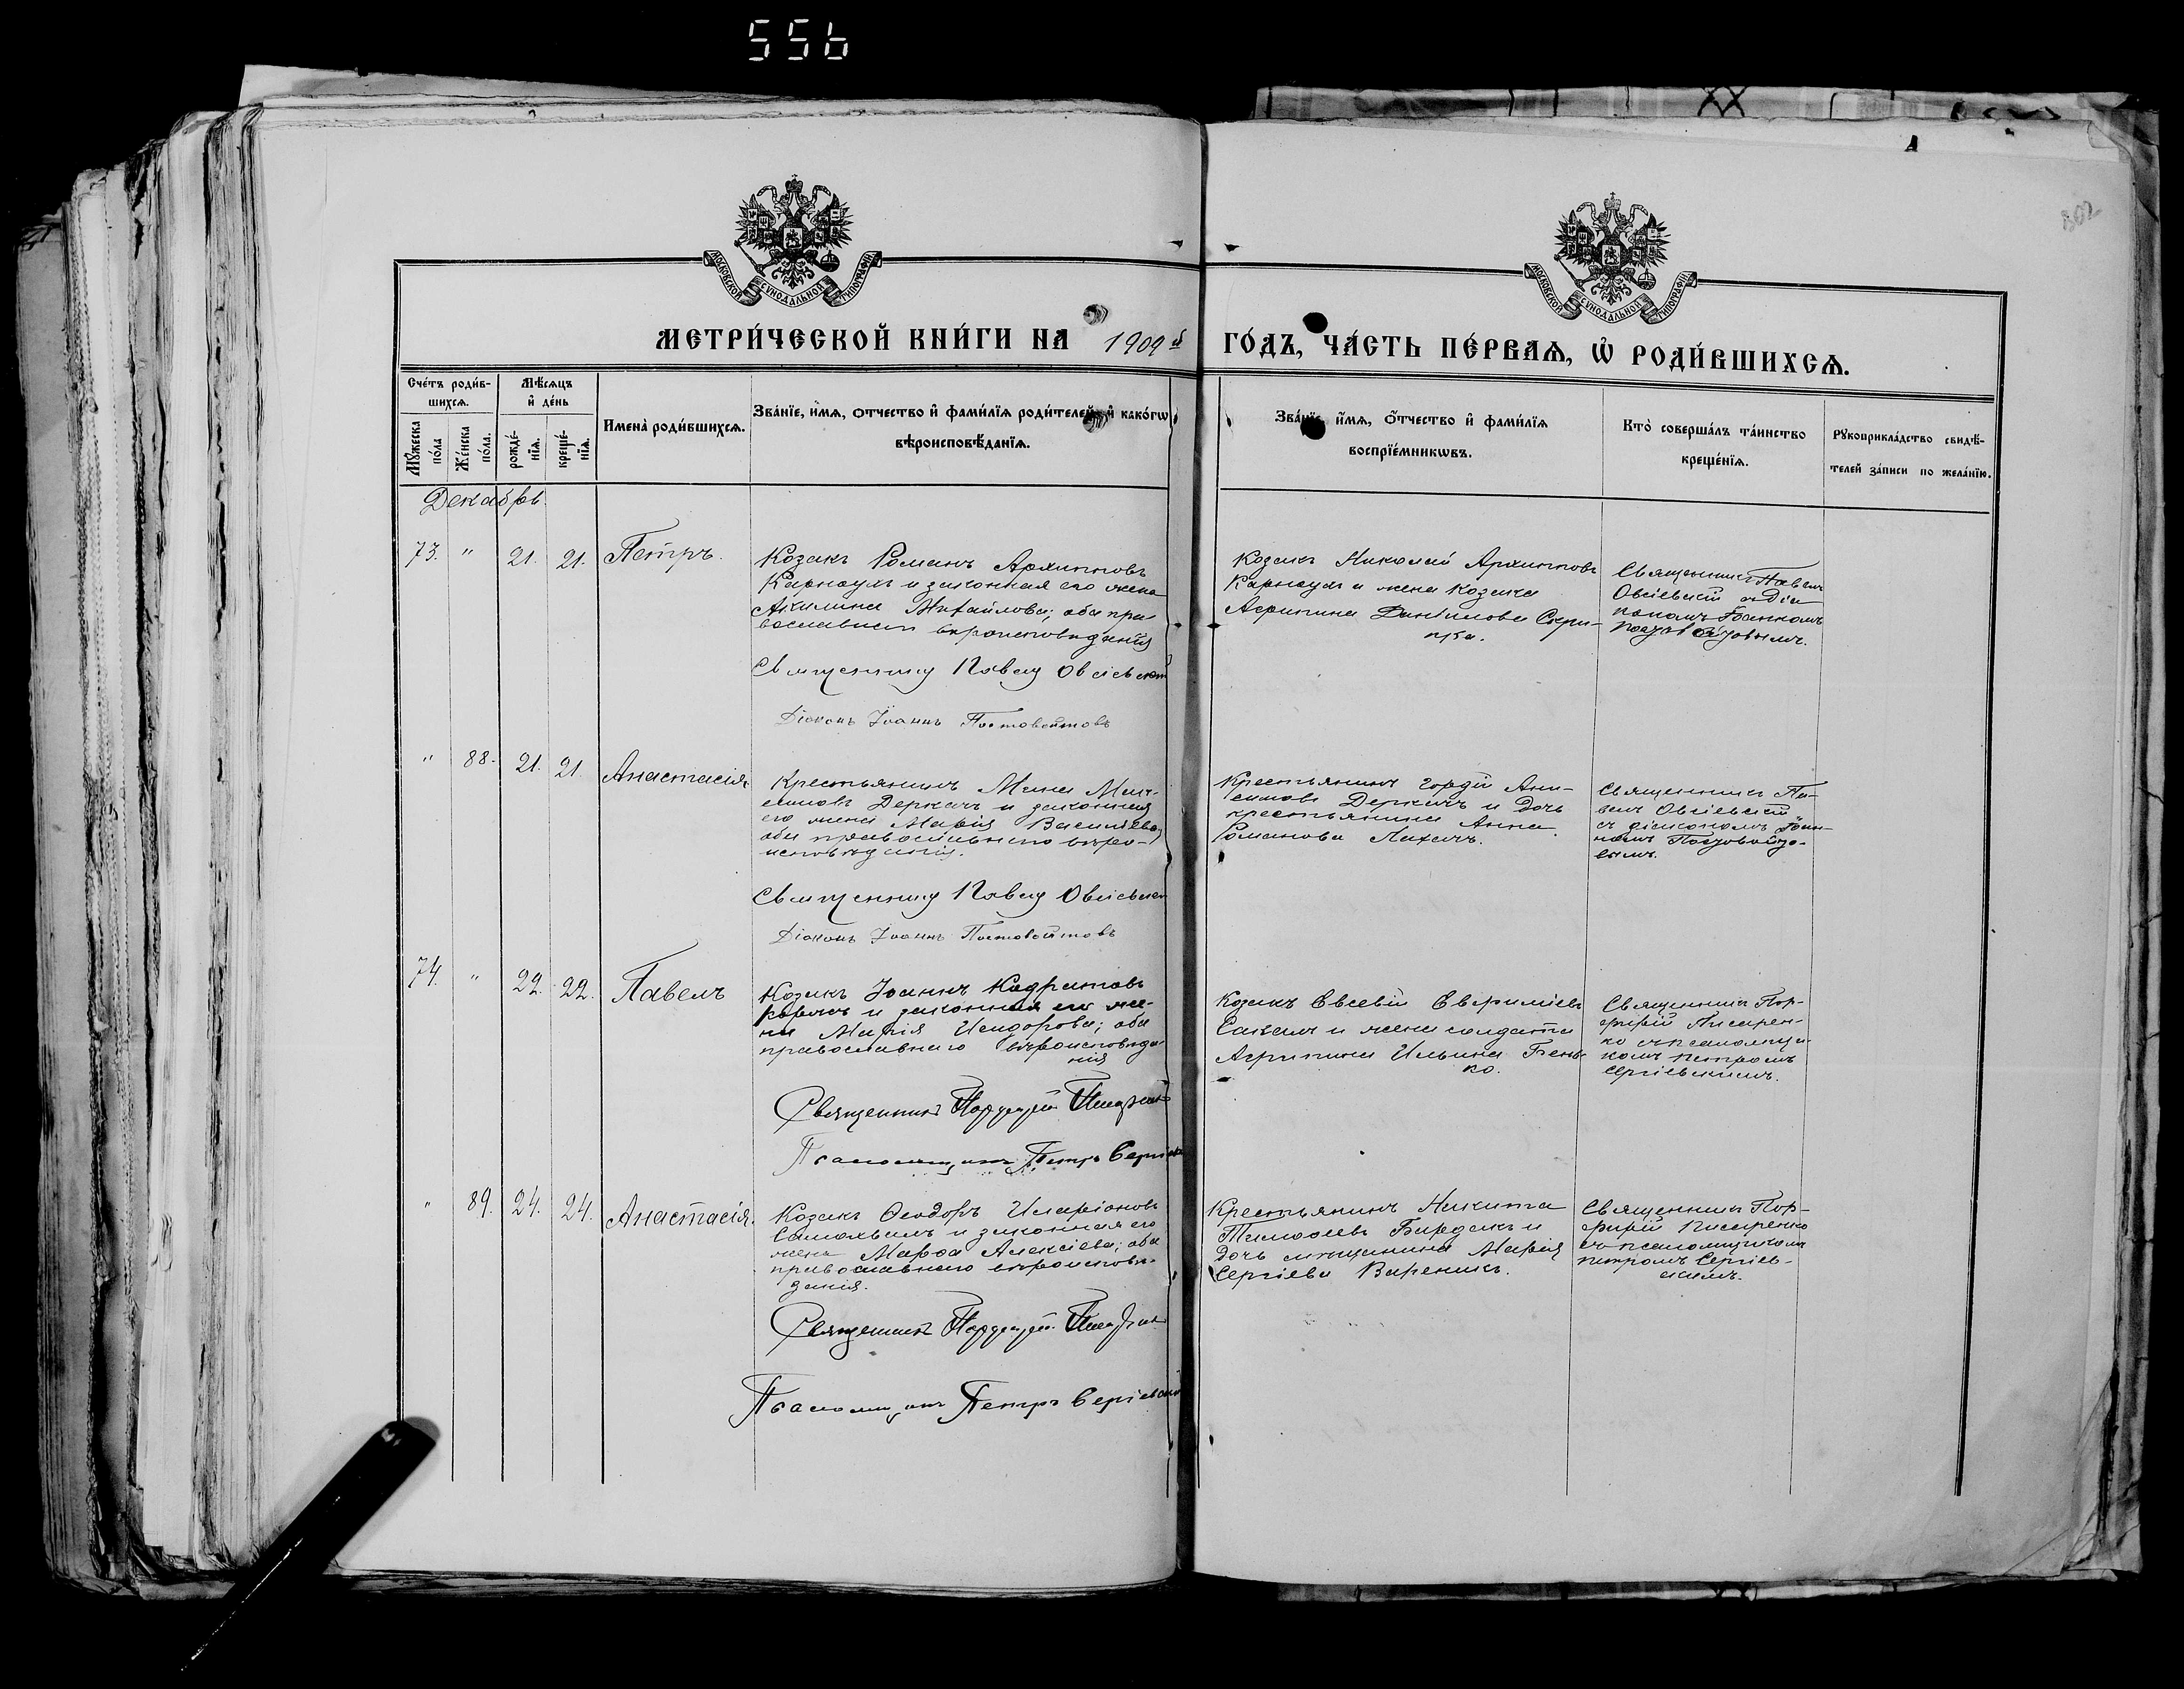 556
302
МОСКОВСКОЙ СУНОДАЛЬНОЙ ТИПОГРАФІИ
МОСКОВСКОЙ СУНОДАЛЬНОЙ ТИПОГРАФІИ
МЕТРИ́ЧЕСКОЙ КНИ́ГИ НА 1909й ГО́ДЪ, ЧА́СТЬ ПЕ́РВАѦ, Ѽ РОДИ́ВШИХСѦ.
Сче́тъ роди́в-
шихсѧ.
Мꙋ́жеска по́ла
Же́нска по́ла.
Мѣ́сѧцъ
и҆ де́нь
рожде́-
нїѧ.
креще́-
нїѧ.
Имена̀ роди́вшихсѧ.
Зва́нїе, и҆́мѧ, ѻтчество и҆ фами́лїѧ роди́телей, и҆ како́гѡ
вѣроисповѣ́данїѧ.
Зва́нїе, и҆́мѧ, ѻ҆́тчество и҆ фами́лїѧ
воспрїе́мникѡвъ.
Кто̀ соверша́лъ та́инство
креще́нїѧ.
Рꙋкоприкла́дство свидѣ́-
телей за́писи по жела́нїю.
Декабрь
73. " 21. 21. Петръ.
Козакъ Романъ Архиповъ
Карнаухъ и законная его жена
Акилина Михайлова; оба пра-
вославнаго вѣроисповѣданія
Священникъ Павелъ Овсіевскій
Діаконъ Іоаннъ Постовойтовъ
Козакъ Николай Архиповъ
Карнаухъ и жена козака
Агрипина Даніилова Скри-
пка.
Священникъ Павелъ
Овсіевскій съ діа-
кономъ Іоанномъ
Постовойтовымъ.
" 88. 21. 21. Анастасія
Крестьянинъ Мина
Деркачъ и законная
его жена Марія Васильева,
оба православнаго вѣро-
исповѣданія.
Священникъ Павелъ Овсіевскій
Діаконъ Іоаннъ Постовойтовъ
Крестьянинъ Гордій Ани-
симовъ Деркачъ и дочь
крестьянина Анна
Романова
Священникъ Па-
велъ Овсіевскій
съ діакономъ Іоан-
номъ Постовойто-
вымъ.
74. " 22. 22. Павелъ
Козакъ Іоаннъ Кодратовъ
и законная его же-
на Марія Исидорова; оба
православнаго вѣроисповѣда-
нія
Священникъ Порфирій Писаренко
Псаломщикъ Петръ Сергіевскій
Козакъ Евсевій
и жена солдата
Агрипина Ильина Гень-
ко.
Священникъ Пор-
фирій Писарен-
ко съ псаломщи-
комъ Петромъ
Сергіевскимъ.
" 89. 24. 24. Анастасія.
Козакъ Ѳеодоръ Иларіоновъ
Самохвалъ и законная его
жена Марѳа Алексіева; оба
православнаго вѣроисповѣ-
данія.
Священникъ Порфирій Писаренко
Псаломщикъ Петръ Сергіевскій
Крестьянинъ Никита
Тимоѳеевъ Бардакъ и
дочь мѣщанина Марія
Сергіева Вареникъ.
Священникъ Пор-
фирій Писаренко
съ псаломщикомъ
Петромъ Сергіев-
скимъ.